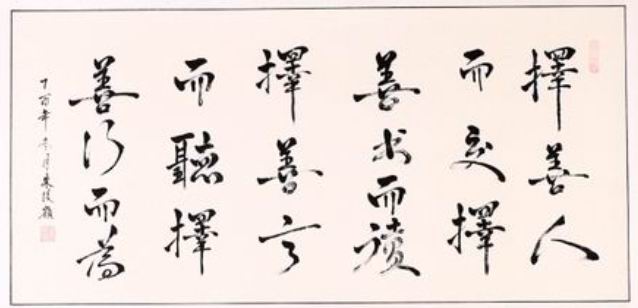 擇善人
而交擇
善書而讀
擇善言
而聽擇
善行而為
丁酉年